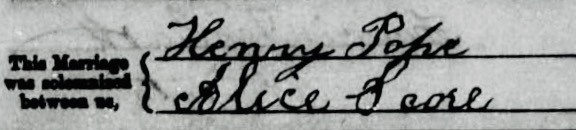 Henry Pope
This Marriage
was solemnized
between us,
Alice Score